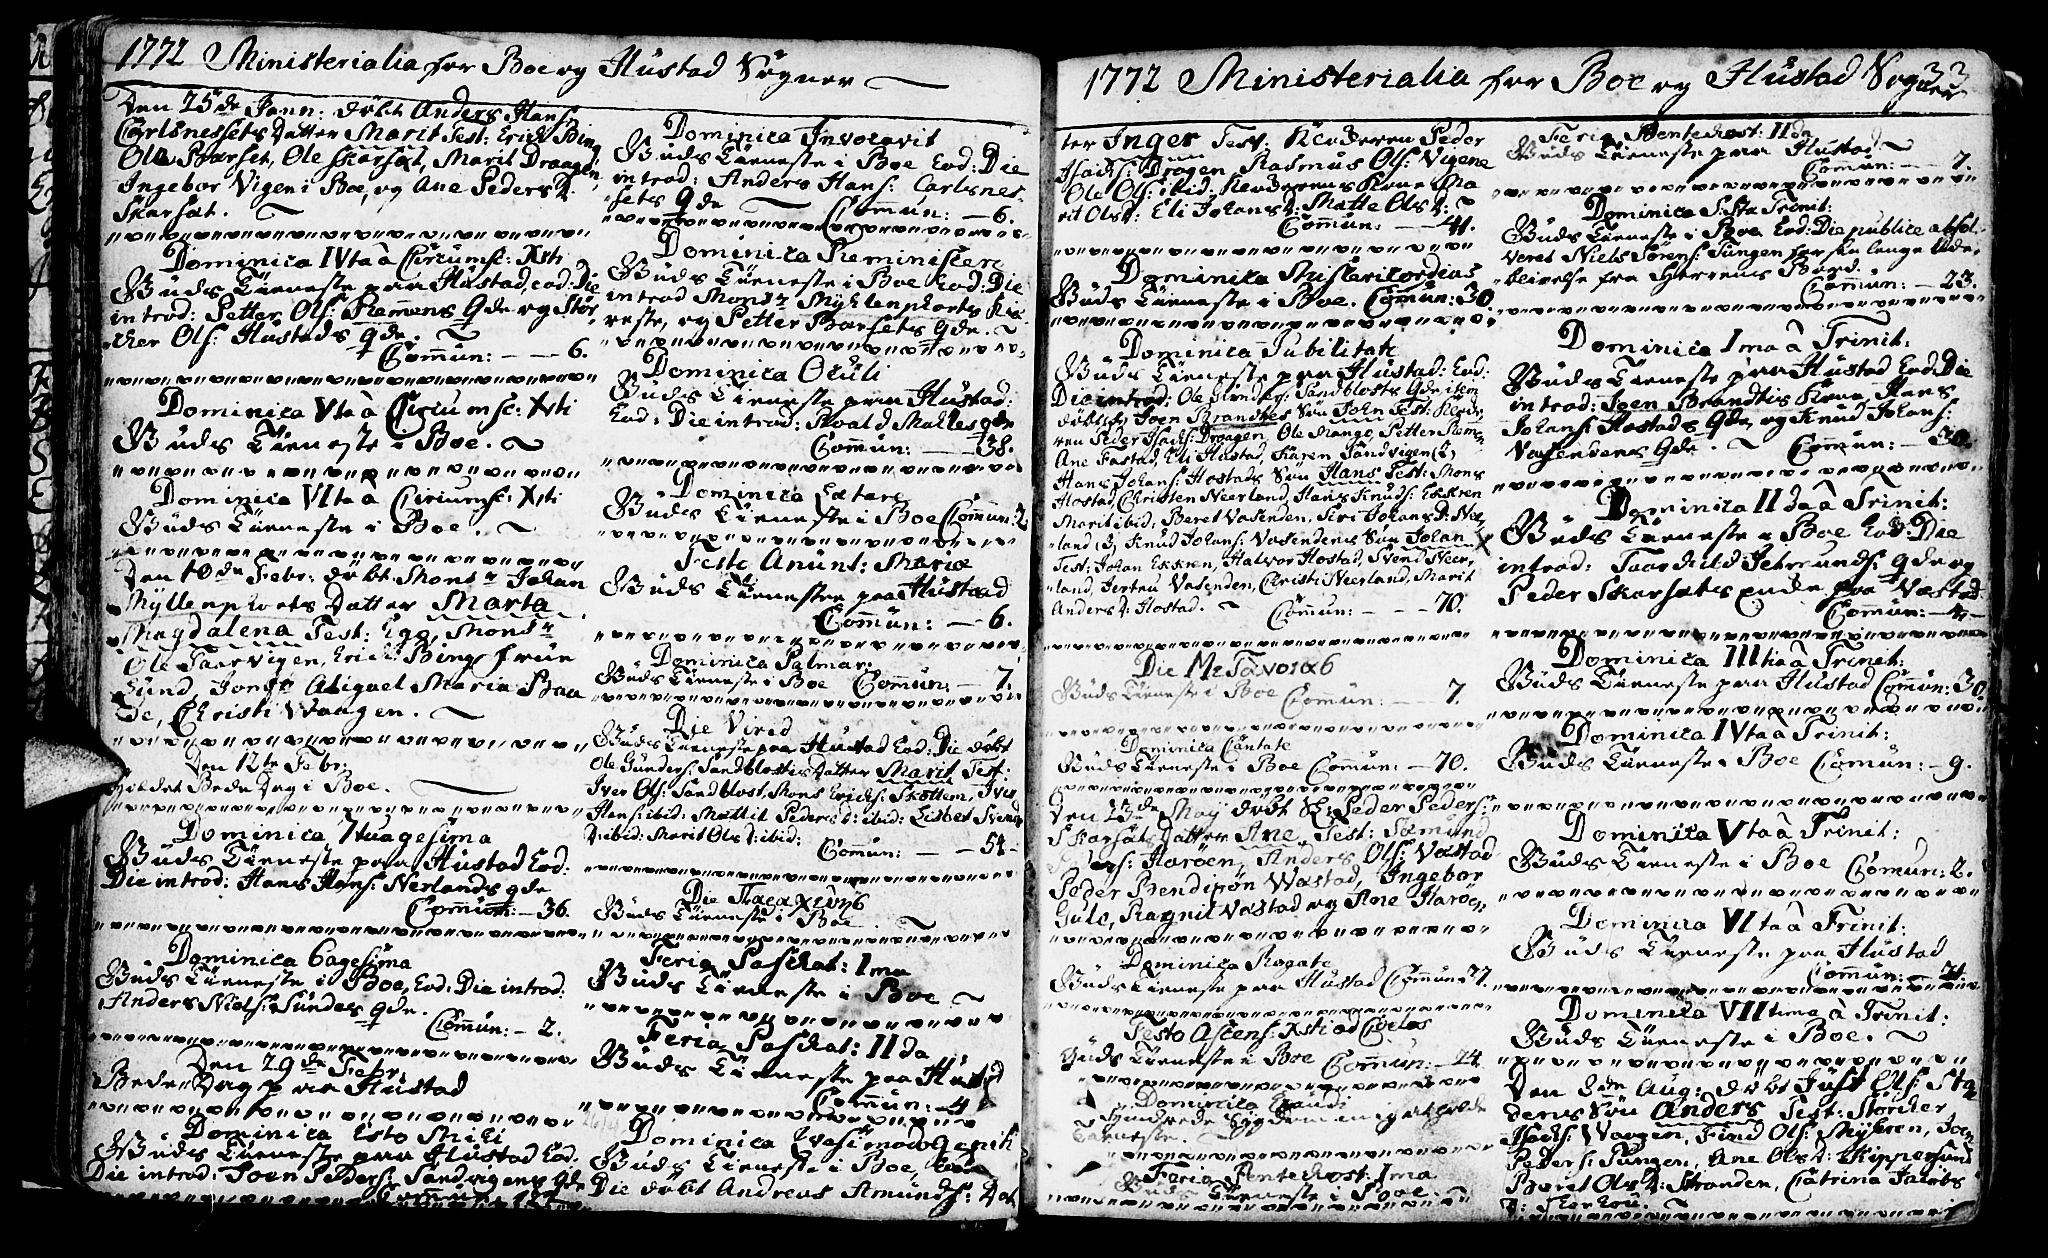 1772 Ministerialia for Boe og Hustad Sogner
Den 25de Jann: døbt Anders Hans:
Carlsnessets Datter Marit Test: Erich Bing
Ole Barset, Ole Skarset, Marit Draagen,
Ingebor Vigen i Boe, og Ane Peders D:
Skarsæt.
Dominica IVta à Circumsc: Xsti
Guds Tieneste paa Hustad, eod: Die
introd: Petter Ols: Remmens Qde og Stör
cher Ols: Hustads qde.
Commun: — 6.
Dominica Vta à Circumsc: Xsti
Guds Tieneste i Boe.
Dominica VIta à Circumsc: Xsti
Guds Tieneste i Boe.
Den 10de Febr: døbt Monsr Johan
Myllenphorts Datter Marta
Magdalena Test: Ego, Monsr
Ole Taarvigen, Erich Bing,
Sund, Abiguel Maria
Christi Waagen.
Den 12te Febr:
holdet Bede Dag i Boe.
Dominica 7tuagesima
Guds Tieneste paa Hustad Eod:
Die introd: Hans Hans: Nerlands qde
Commun: — 36.
Dominica 6agesima
Guds Tieneste i Boe, Eod: Die introd:
Anders Niels: Sundes qde.
Commun: — 2.
Den 29de Febr.
Bede Dag paa Hustad
Dominica Esto Mihi
Guds Tieneste paa Hustad Eod.
Die introd: Joen Peders: Sandvigens qde
Dominica Invocavit
Guds Tieneste i Boe Eod: Die
introd: Anders Hans: Carlsnes-
sets Qde Commun: — 6.
Dominica Reminiscere
Guds Tieneste i Boe Eod: Die
introd Monsr Myhlenphorts Kie
reste, og Petter Barsets Qde.
Dominica Oculi
Guds Tieneste paa Hustad:
Eod: Die introd: Roald Malles qde
Commun: — 38.
Dominica Lætare
Guds Tieneste i Boe Commun: 2
Festo Anunt: Mariæ
Guds Tieneste paa Hustad
Commun: — 6.
Dominica Palmar:
Guds Tieneste i Boe Commun: — 7.
Die Virid
Guds Tieneste paa Hustad Eod: Die døbt
Ole Gunders: Sandblostes Datter Marit Test:
Iver Ols: Sandblost, Mons Erichs: Skottem, Iver
Hans: ibid: Mallit Peders D: ibid: Lisbet Svends
D: ibid: Marit Ols D: ibid: Commun: — 54 -
Die
Guds Tieneste i Boe.
Feria Paschat: Ima
Guds Tieneste i Boe
Feria Paschat: IIda
Guds Tieneste paa Hustad
Commun: — 4
Dominica Qvasimodogeniti
Guds Tieneste i Boe, Eod
Die døbt Andreas Amunds: Dat
1772 Ministerialia for Boe og Hustad Sogner
33
ter Inger Test: Klocheren Peder
Isachs: Dragen Rasmus Ols: Vigene
Ole Ols: ibid: Klocherens Kone Ma
rit Ols D: Eli Johans D: Matte Ols D:
Commun: — 41.
Dominica Misericordias
Guds Tieneste i Boe. Commun: 30
Dominica Jubilate
Guds Tieneste paa Hustad: Eod:
Die introd: Ole Gunders: Sandblosts Qde item
døbt Joen Brandtes Søn John Test: Kloche
ren Peder Isachs: Draagen, Ole Mango, Petter Remen
Ane Fastad, Eli Hustad, Karen Sandvigen (2)
Hans Johans: Hostads Søn Hans Test: Mons
Hostad, Christen Neerland, Hans Knuds: Ekkren
Marit ibid: Beret Vasenden, Siri Johans D: Nee
land (3) Knud Johans: Vasendens Søn Johan
Test: Johan Ekkren, Halvor Hostad, Svend Neer
land, Jertru Vasenden, Christi Neerland, Marit
Anders D: Hostad. Commun: — 70.
Die
Guds Tieneste i Boe Commun: — 7.
Dominica Cantate
Guds Tieneste i Boe Commun: — 70.
Den 23de May døbt Peder Peders:
Skarsæt Datter Ane, Test:
Harøen, Anders Ols: Vastad
Peder Bendixøn Wastad, Ingebor
Gule, Ragnil Vastad og Ane Harøen
Dominica Rogate
Guds Tieneste paa Hustad Commun: 77.
Festo Ascens: Xsti ad Coelos
Guds Tieneste i Boe Commun: — 24
Dominica Exaudi
hindrede Sygdom mig at holde
Tieneste.
Feria Pentechost: Ima
Guds Tieneste i Boe.
Feria Pentechost: IIda
Guds Tieneste paa Hustad.
Commun: — 7.
Dominica S: Sta Trinit:
Guds Tieneste i Boe Eod: Die publice absol
veret Niels Sörens: Tungen for sin lange Ude
blivelse fra Herrens Bord.
Commun: — 23.
Dominica Ima à Trinit:
Guds Tieneste paa Hustad Eod: Die
introd: Joen Brandtis Kone, Hans
Johans: Hostads Qde, og Knud Johans:
Vasendens Qde. Commun: — 30.
Dominica IIda à Trinit:
Guds Tieneste i Boe Eod: Die
introd: Jetmunds: qde og
Peder Skarsæts qvinde fra Vastad
Commun: — 4 -
Dominica IIItia à Trinit:
Guds Tieneste paa Hustad Commun: 30
Dominica IVta à Trinit:
Guds Tieneste i Boe Commun: — 9.
Dominica Vta à Trinit:
Guds Tieneste i Boe Commun: 2.
Dominica VIta à Trinit:
Guds Tieneste paa Hustad
Commun: — 21.
Dominica VIItima à Trinit:
Guds Tieneste i Boe.
Den 8de Aug: døbt Just Ols: Sta
dens Søn Anders Test: Störcker
Isachs: Waagen, Find Ols: Myhren, Joen
Peders: Tungen, Ane Ols D: Kippersund
Berit Ols D: Stranden, Catrina Jacobs
D: